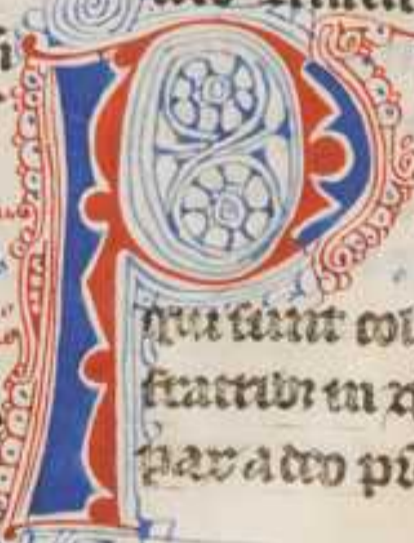 P
qui sunt col
fratribꝫ in x
pax a deo p